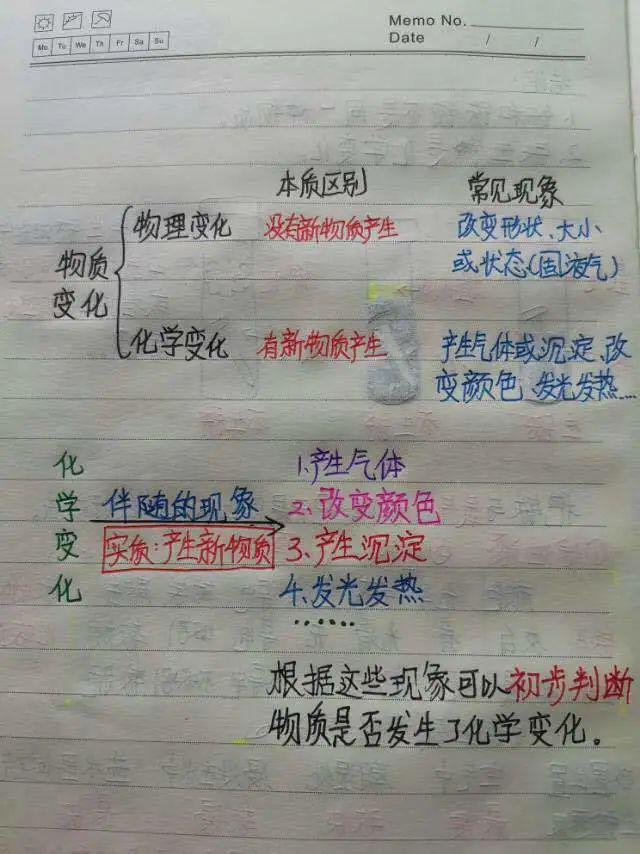 Memo No.
Mo Tu We Th Fr Sa Su
Date / /
本质区别 常见现象
物理变化 没有新物质产生 改变形状、大小
物质 或状态(固液气)
变化
化学变化 有新物质产生 产生气体或沉淀、改
变颜色、发光发热...
化 1.产生气体
学 伴随的现象 2、改变颜色
变 实质:产生新物质 3、产生沉淀
化 4、发光发热
......
根据这些现象可以初步判断
物质是否发生了化学变化。